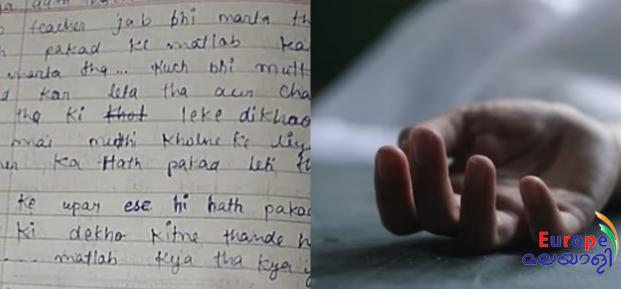 teacher jab bhi marta th
pakad ke matlab ka
marta tha... Kuch bhi mutt
kar leta tha aur cha
tha ki khot leke dikhao
mai muthi kholne ke liy
ka Hath pakad leti
ke upar ese hi hath pakad
ki dekho kitne thande h
matlab kya tha kya
Europe
മലയാളി